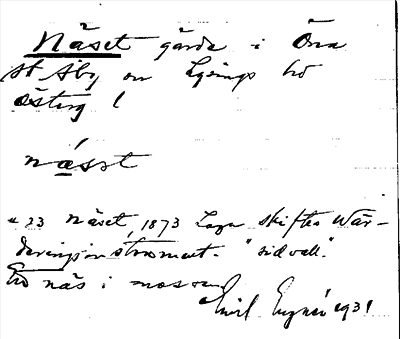 Näset gärde i Öna
St Åby sn Lysings hd
Österg l
näset
"23 Näset, 1873 Laga skiftes Wär-
deringsinstrument. "sidvall".
Ett näs i mossen
Emil 1931